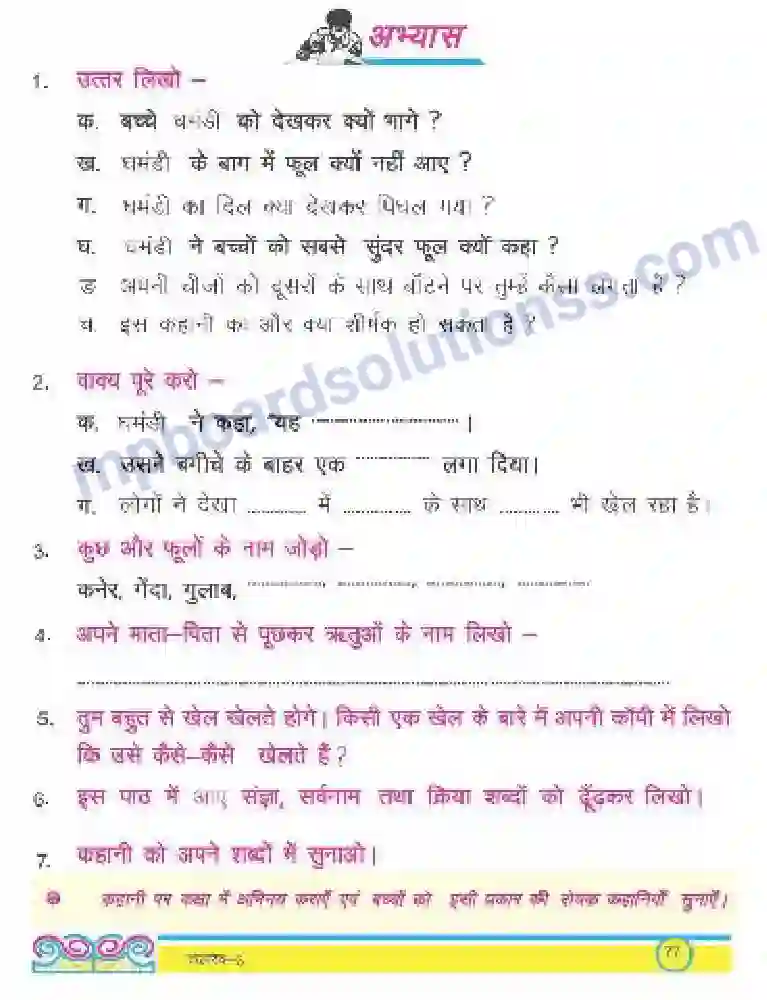 अभ्यास
1. उत्तर लिखो –
क. बच्चे घमंडी को देखकर क्यों भागे ?
ख. घमंडी के बाग में फूल क्यों नहीं आए ?
ग. घमंडी का दिल क्या देखकर पिघल गया ?
घ. घमंडी ने बच्चों को सबसे सुंदर फूल क्यों कहा ?
ङ अपनी चीजों को दूसरों के साथ बाँटने पर तुम्हें कैसा लगता है ?
च. इस कहानी का और क्या शीर्षक हो सकता है ?
2. वाक्य पूरे करो –
क. घमंडी ने कहा, "यह ........................ ।
ख. उसने बगीचे के बाहर एक ............ लगा दिया।
ग. लोगों ने देखा ............ में ............ के साथ ............ भी खेल रहा है।
3. कुछ और फूलों के नाम जोड़ो –
कनेर, गेंदा, गुलाब, ............, ............, ............, ............
4. अपने माता–पिता से पूछकर ऋतुओं के नाम लिखो –
5. तुम बहुत से खेल खेलते होगे। किसी एक खेल के बारे में अपनी कॉपी में लिखो
कि उसे कैसे–कैसे खेलते हैं ?
6. इस पाठ में आए संज्ञा, सर्वनाम तथा क्रिया शब्दों को ढूँढ़कर लिखो।
7. कहानी को अपने शब्दों में सुनाओ।
कहानी पर कक्षा में अभिनय कराएँ एवं बच्चों को इसी प्रकार की रोचक कहानियाँ सुनाएँ।
77
mpboardsolutionss.com